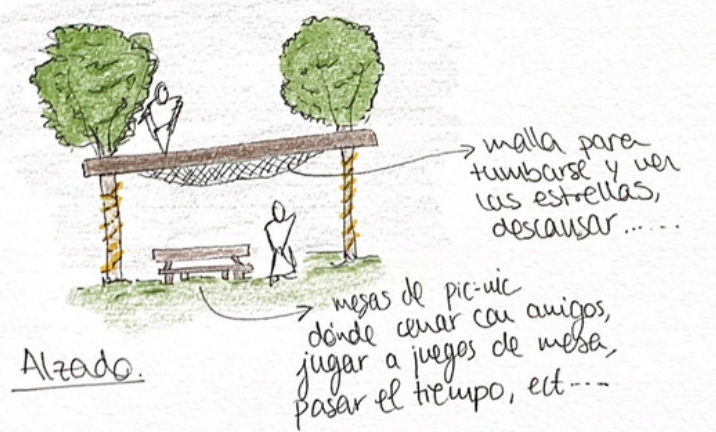 malla para
tumbarse y ver
las estrellas,
descansar......
mesas de pic-nic
dónde cenar con amigos,
jugar a juegos de mesa,
pasar el tiempo, ect----
Alzado.